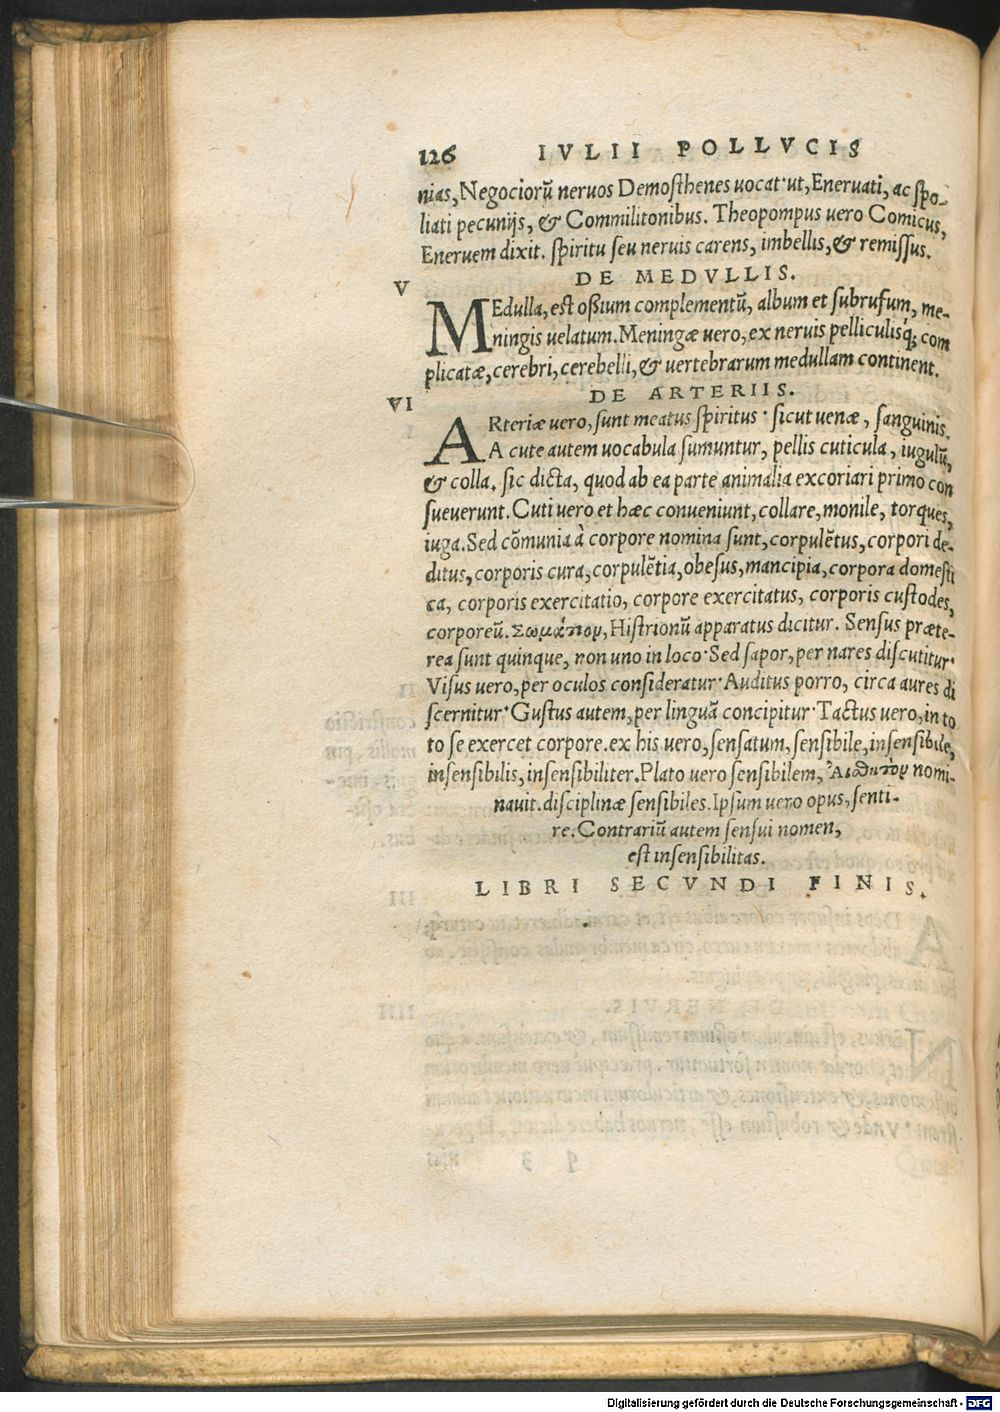 126 IVLII POLLVCIS
nias, Negociorū neruos Demosthenes uocat·ut, Eneruati, ac spo-
liati pecunijs, & Commilitonibus. Theopompus uero Comicus,
Eneruem dixit. spiritu seu neruis carens, imbellis, & remissus.
DE MEDVLLIS.
V
MEdulla, est ossium complementū, album et subrufum, me-
ningis uelatum. Meningæ uero, ex neruis pelliculisq́; com
plicatæ, cerebri, cerebelli, & uertebrarum medullam continent.
DE ARTERIIS.
VI
ARteriæ uero, sunt meatus spiritus· sicut uenæ, sanguinis.
A cute autem uocabula sumuntur, pellis cuticula, iugulū,
& colla. sic dicta, quod ab ea parte animalia excoriari primo con
sueuerunt. Cuti uero et hæc conueniunt, collare, monile, torques,
iuga. Sed cōmunia à corpore nomina sunt, corpulētus, corpori de-
ditus, corporis cura, corpulētia, obesus, mancipia, corpora domesti
ca, corporis exercitatio, corpore exercitatus, corporis custodes,
corporeū. Σωμάτιον, Histrionū apparatus dicitur. Sensus præte-
rea sunt quinque, non uno in loco· Sed sapor, per nares discutitur·
Visus uero, per oculos consideratur· Auditus porro, circa aures di
scernitur· Gustus autem, per linguā concipitur· Tactus uero, in to
to se exercet corpore. ex his uero, sensatum, sensibile, insensibile,
insensibilis, insensibiliter. Plato uero sensibilem, Αἰσθητὸν nomi-
nauit. disciplinæ sensibiles. Ipsum uero opus, senti-
re. Contrariū autem sensui nomen,
est insensibilitas.
LIBRI SECVNDI FINIS.
Digitalisierung gefördert durch die Deutsche Forschungsgemeinschaft - DFG